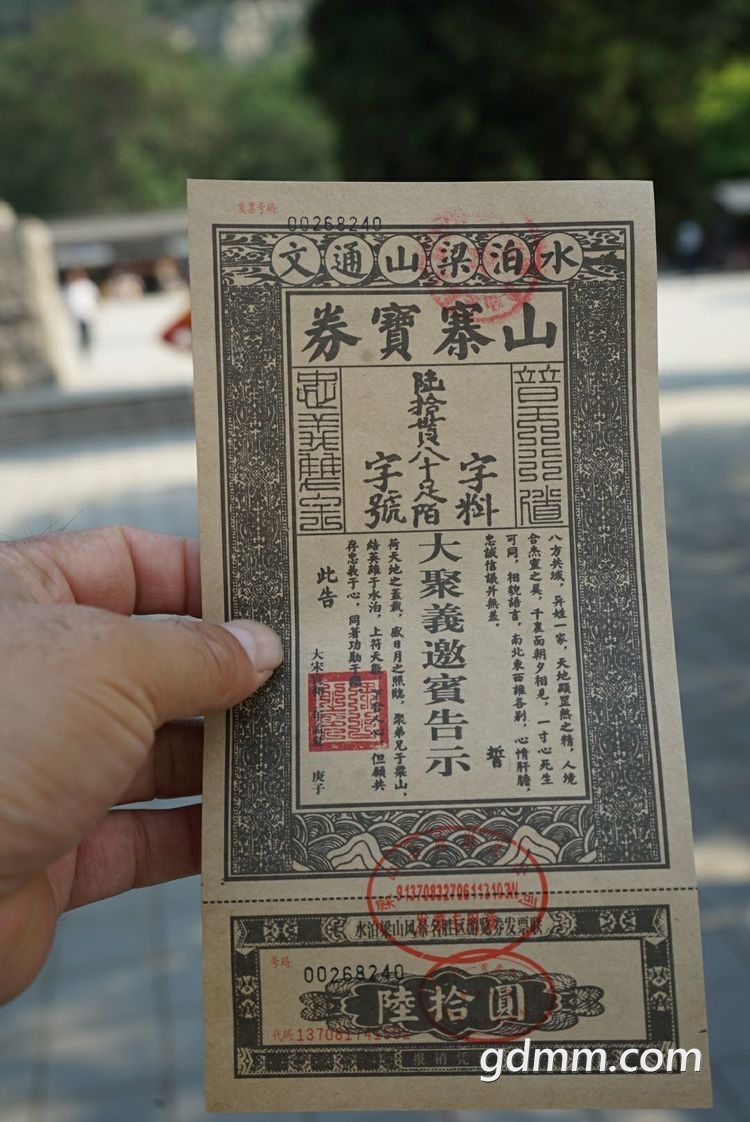 发票号码:
00268240
水泊梁山通文
山寨寶券
普天斯道
陸拾貫八十足陌
忠義雙全
字料
字號
八方共域，异姓一家，天地顯罡煞之精，人境
合杰靈之美，千里面朝夕相見，一寸心死生
可同，相貌語言，南北東西雖各别，心情肝膽，
忠誠信議并無差。
誓
大聚義邀賓告示
荷天地之蓋载，感日月之照臨，聚弟兄于梁山，
結英雄于水泊，上符天數，下合人心，但願共
存忠義于心，同著功勛于國
此告
大宋宣和
庚子
91370832706113103N
水泊梁山风景名胜区游览券发票联
号码:
00268240
陸拾圓
代码:
报销凭
gdmm.com